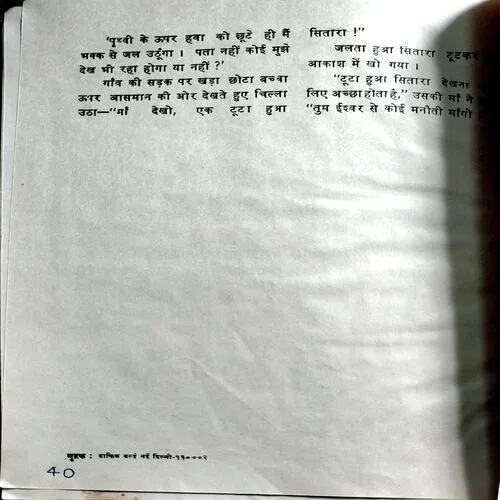 'पृथ्वी के ऊपर हवा को छूते ही मैं
भक्क से जल उठूंगा । पता नहीं कोई मुझे
देख भी रहा होगा या नहीं ?'
गाँव की सड़क पर खड़ा छोटा बच्चा
ऊपर आसमान की ओर देखते हुए चिल्ला
उठा—"माँ देखो, एक टूटा हुआ
सितारा !"
जलता हुआ सितारा टूटकर
आकाश में खो गया ।
"टूटा हुआ सितारा देखना
लिए अच्छा होता है," उसकी माँ ने
"तुम ईश्वर से कोई मनौती माँगो
मुद्रक : ग्राफिक वर्ल्ड नई दिल्ली-११०००२
40